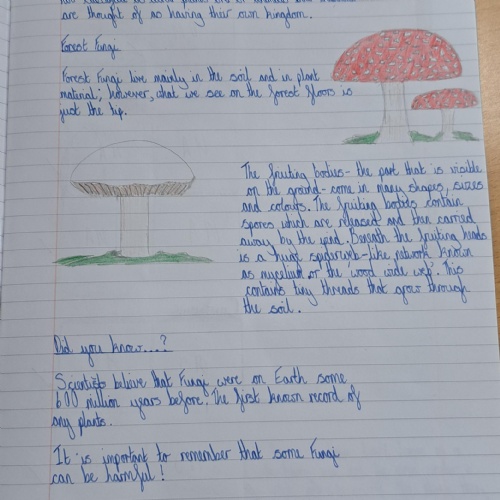 are thought of as having their own kingdom.
Forest Fungi
Forest Fungi live mainly in the soil and in plant
material; however, what we see on the forest floors is
just the tip.
The fruiting bodies - the part that is visible
on the ground - come in many shapes, sizes
and colours. The fruiting bodies contain
spores which are released and then carried
away by the wind. Beneath the fruiting heads
is a huge spiderweb-like network known
as mycelium or the 'wood wide web'. This
contains tiny threads that grow through
the soil.
Did you know....?
Scientists believe that Fungi were on Earth some
600 million years before. The first known record of
any plants.
It is important to remember that some Fungi
can be harmful!